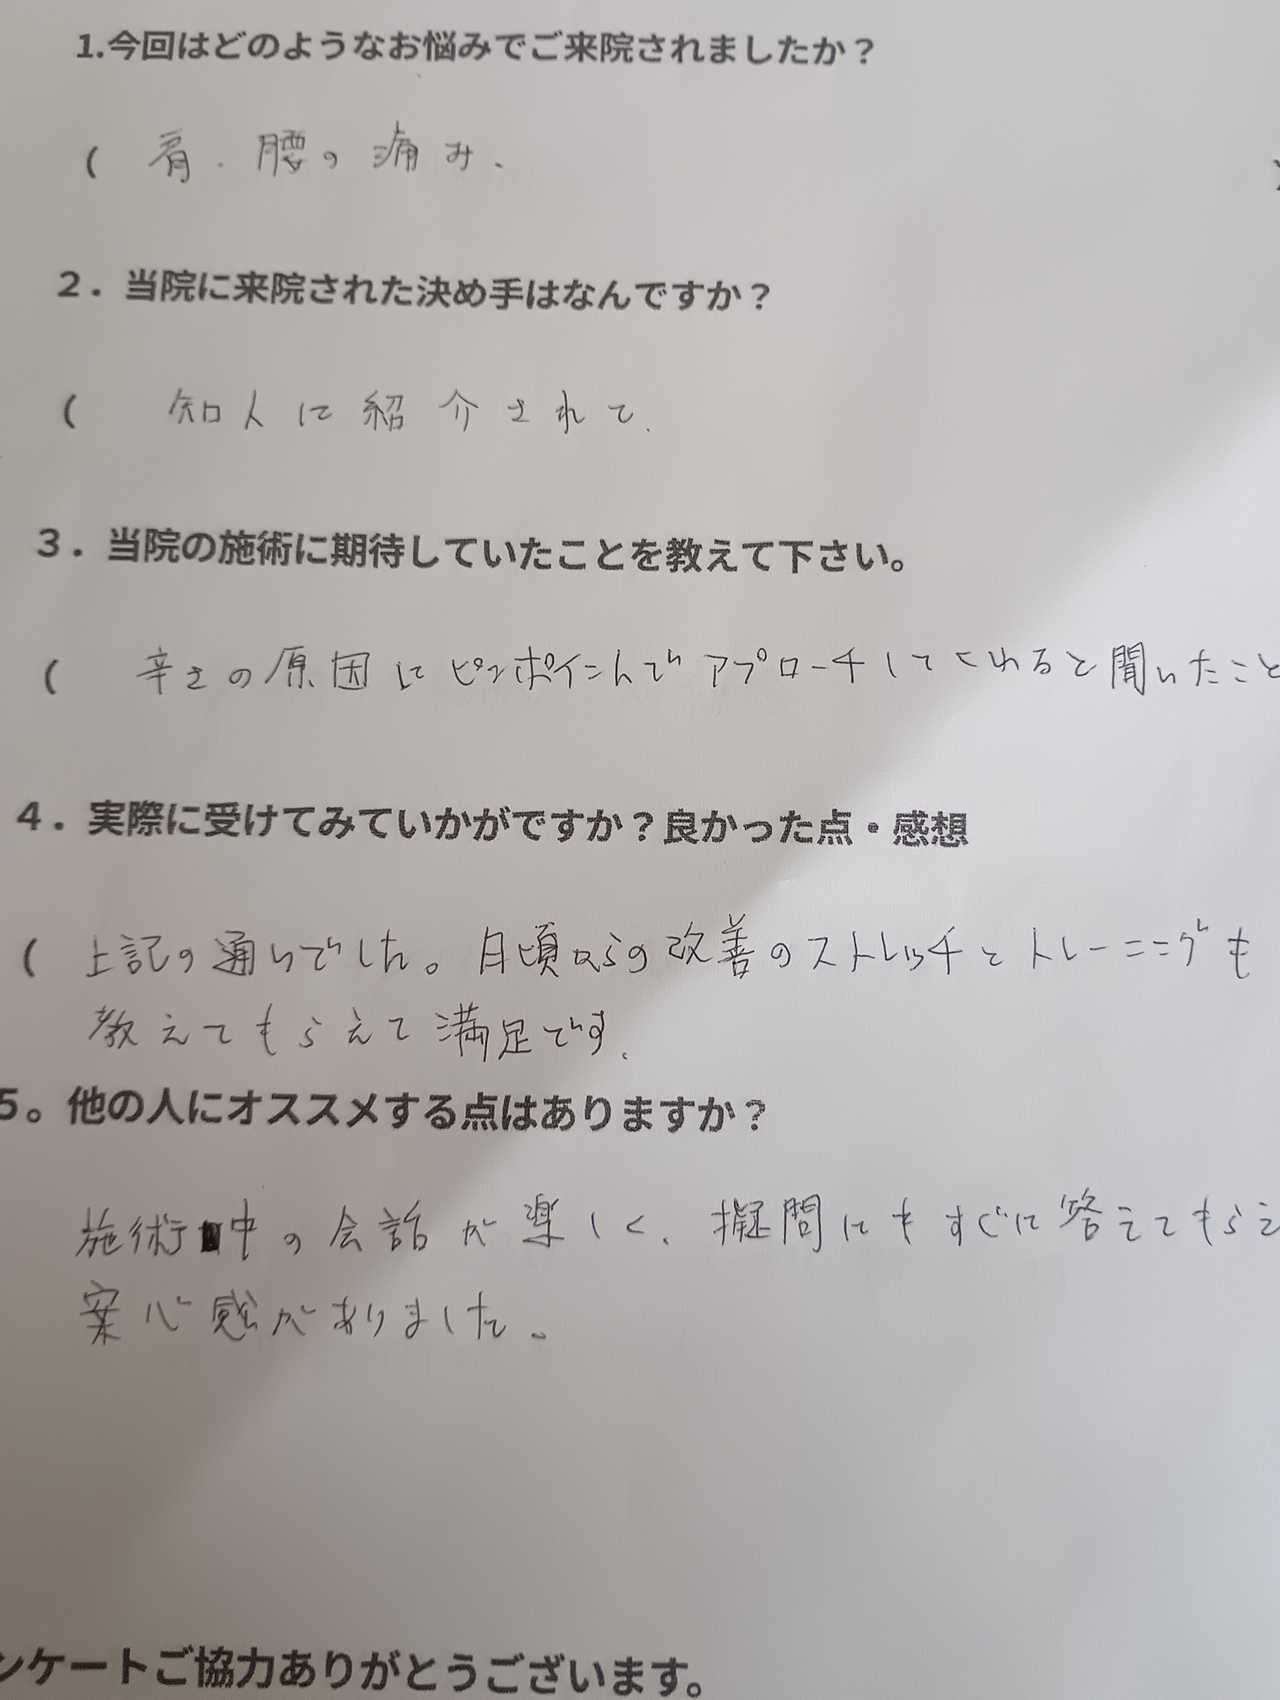 1.今回はどのようなお悩みでご来院されましたか？
( 肩・腰の痛み、 )
2．当院に来院された決め手はなんですか？
( 知人に紹介されて、
3．当院の施術に期待していたことを教えて下さい。
( 辛さの原因にピンポイントでアプローチしてくれると聞いたこと
4．実際に受けてみていかがですか？良かった点・感想
( 上記の通りでした。日頃からの改善のストレッチとトレーニングも
教えてもらえて満足です、
5。他の人にオススメする点はありますか？
施術中の会話が楽しく、擬問にもすぐに答えてもらえ
安心感がありました。
ンケートご協力ありがとうございます。